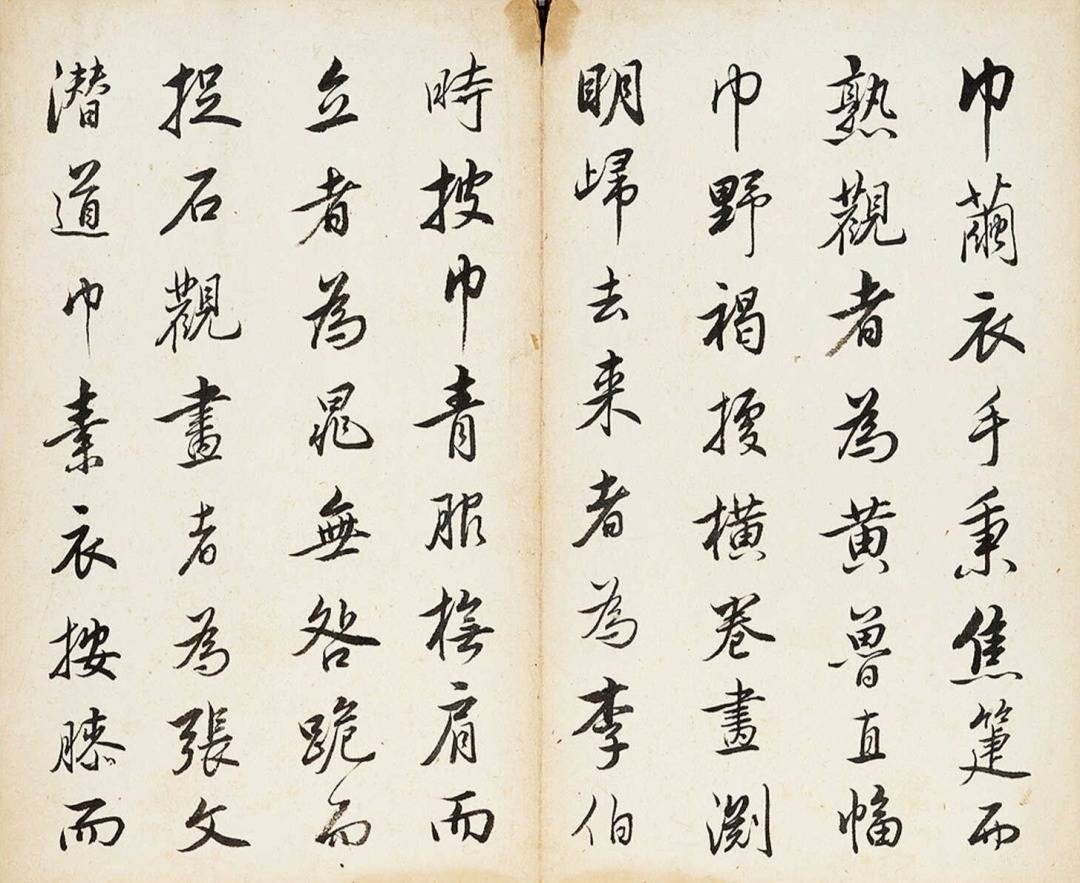 巾繭衣手秉焦箑而
熟觀者為黄魯直幅
巾野褐據橫卷畫淵
明歸去来者為李伯
時披巾青服撫肩而
立者為晁無咎跪而
捉石觀畫者為張文
潜道巾素衣按膝而